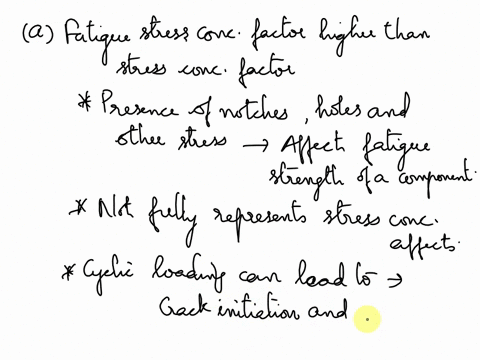 (a) Fatigue stress conc. factor higher than
stress conc. factor
* Presence of notches, holes and
other stress → Affect fatigue
strength of a component.
* Not fully represents stress conc.
affects.
* Cyclic loading can lead to →
Crack initiation and